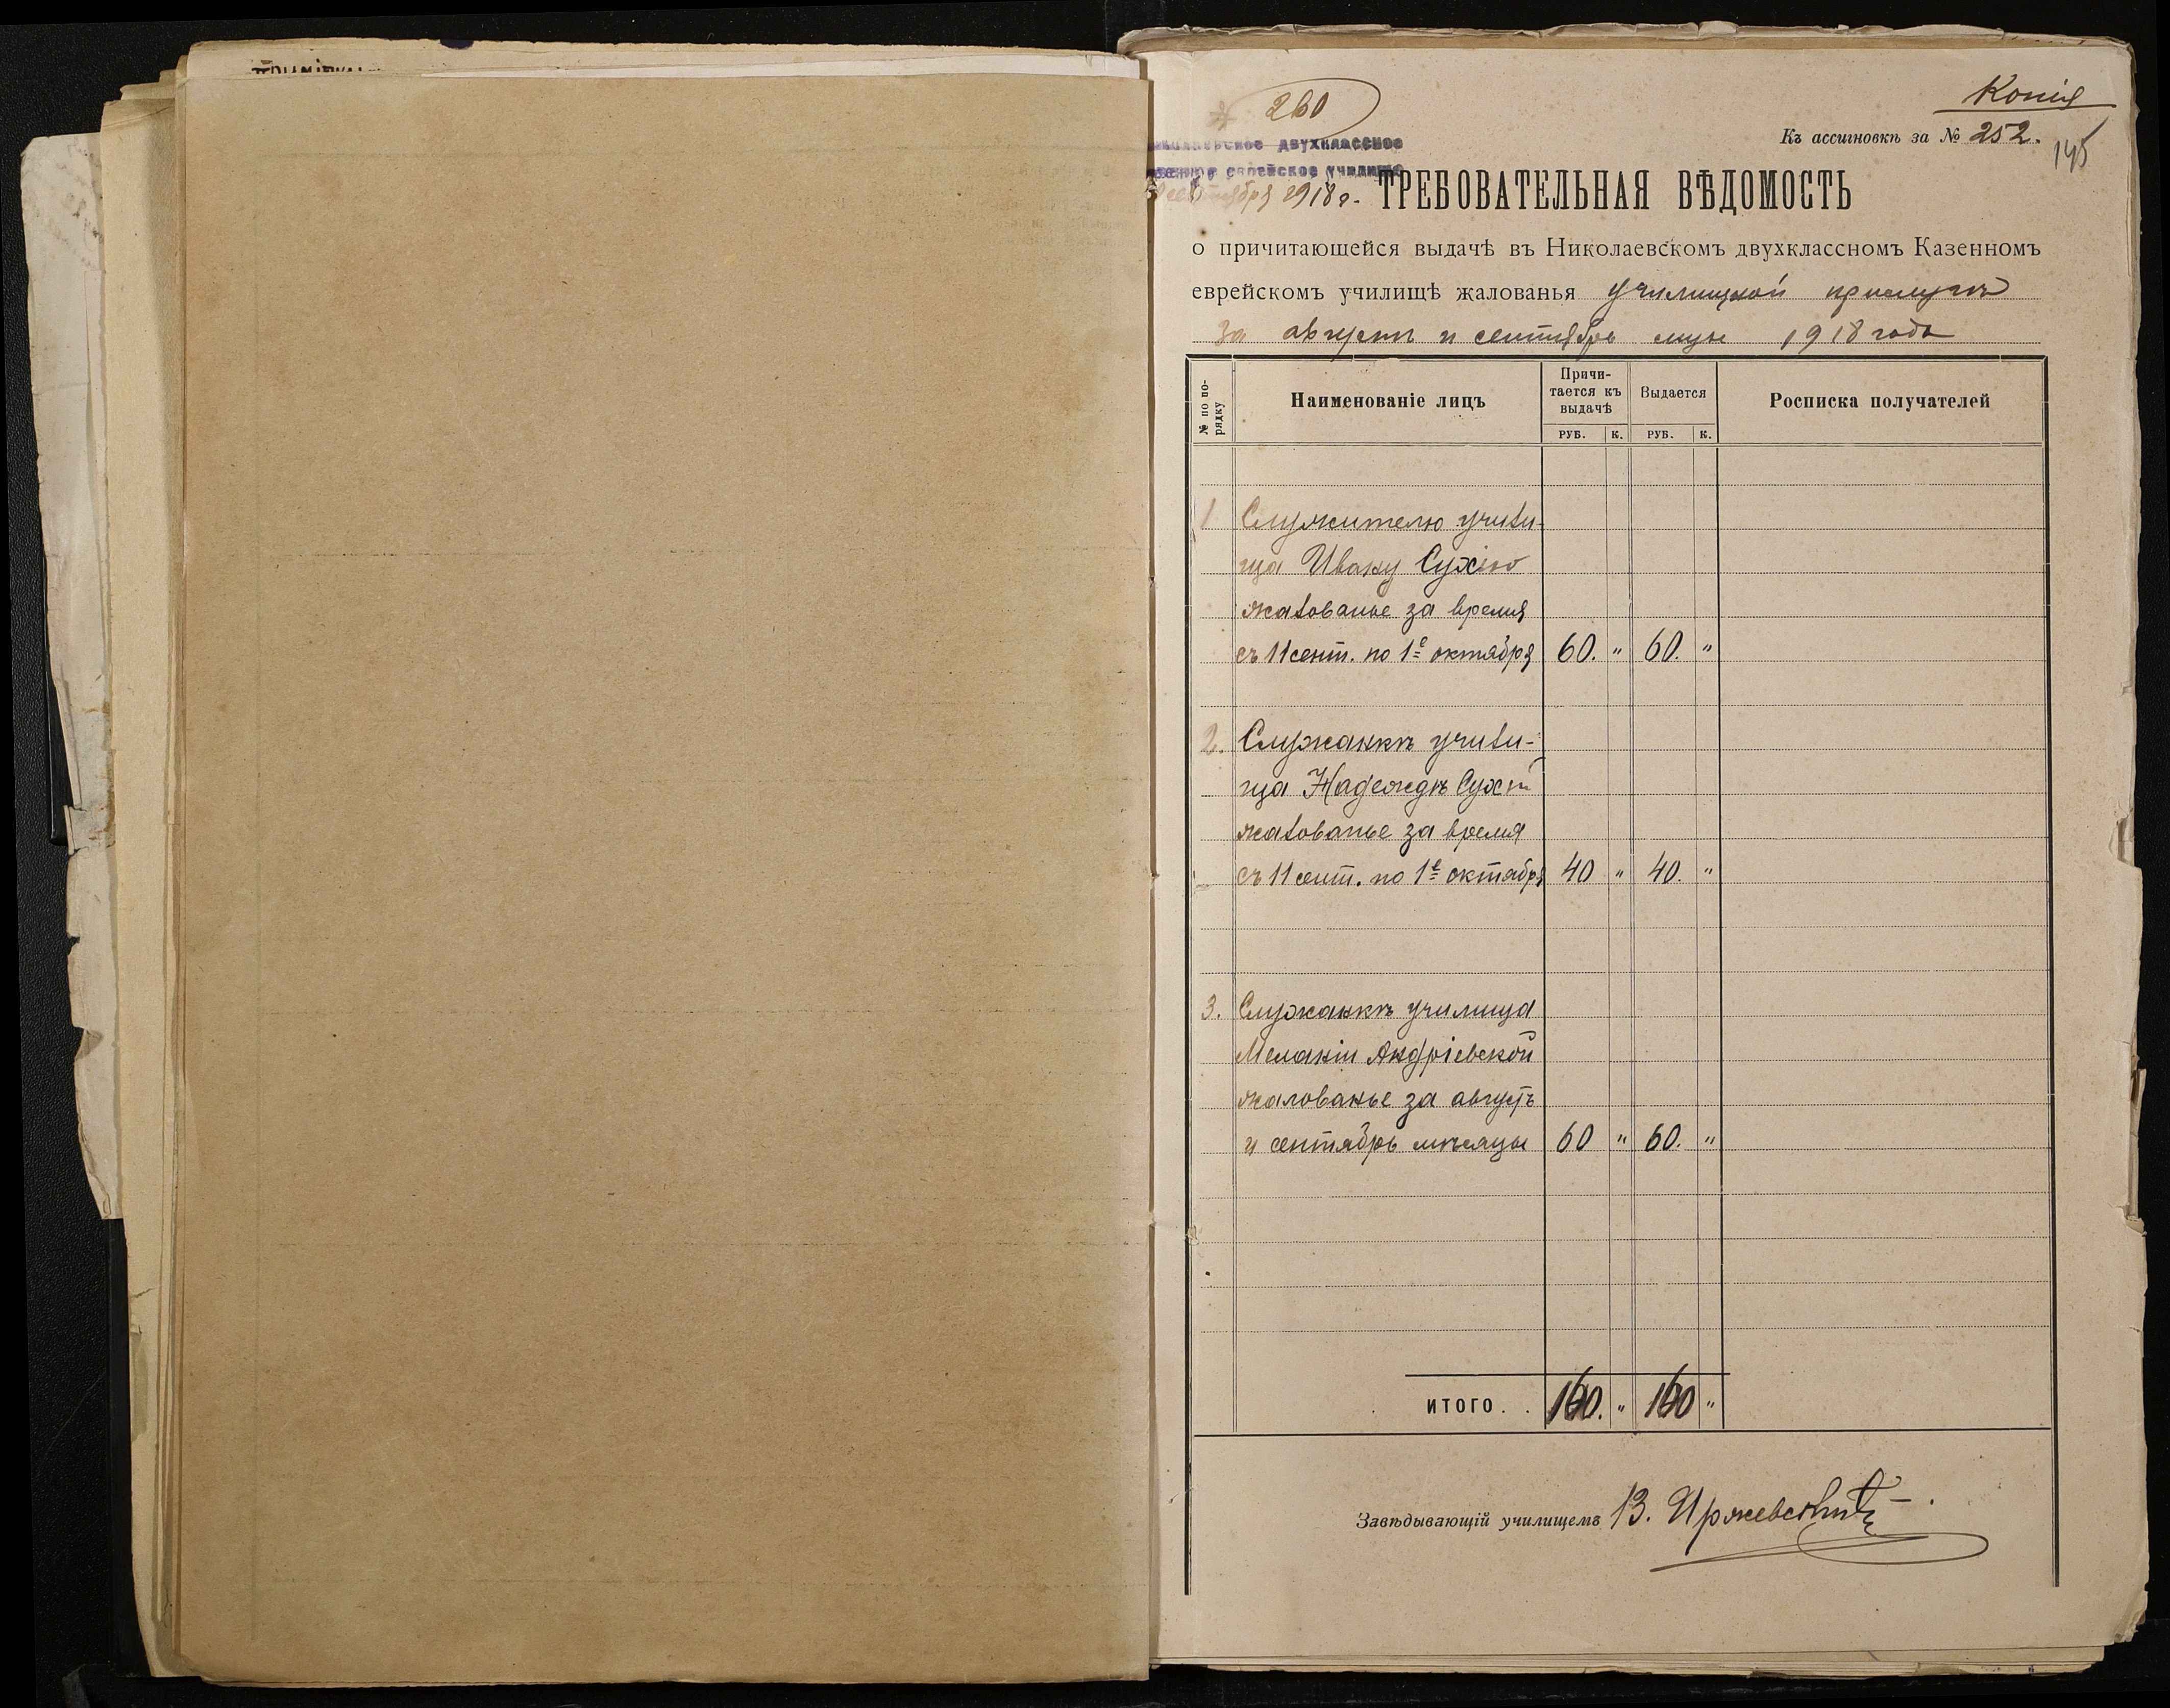 260
Копія
Къ ассигновкѣ за № 252.
145
двухклассное
еврейское училище
сентября 1918 г.
ТРЕБОВАТЕЛЬНАЯ ВѢДОМОСТЬ
о причитающейся выдачѣ въ Николаевскомъ двухклассномъ Казенномъ
еврейскомъ училищѣ жалованья училищной прислугѣ
за августъ и сентябрь мцы 1918 года
№ по по-
рядку
Наименованіе лицъ
Причи-
тается къ
выдачѣ
Выдается
Росписка получателей
РУБ. К. РУБ. К.
1 Служителю учили-
ща Ивану Сухію
жалованье за время
съ 11 сент. по 1е октября 60. " 60. "
2. Служанкѣ учили-
ща Надеждѣ Сухій
жалованье за время
съ 11 сент. по 1е октября 40 " 40. "
3. Служанкѣ училища
Меланіи Андріевской
жалованье за августъ
и сентябрь мѣсяцы 60 " 60. "
ИТОГО. . 160. " 160 "
Завѣдывающій училищемъ В. Иржевскій